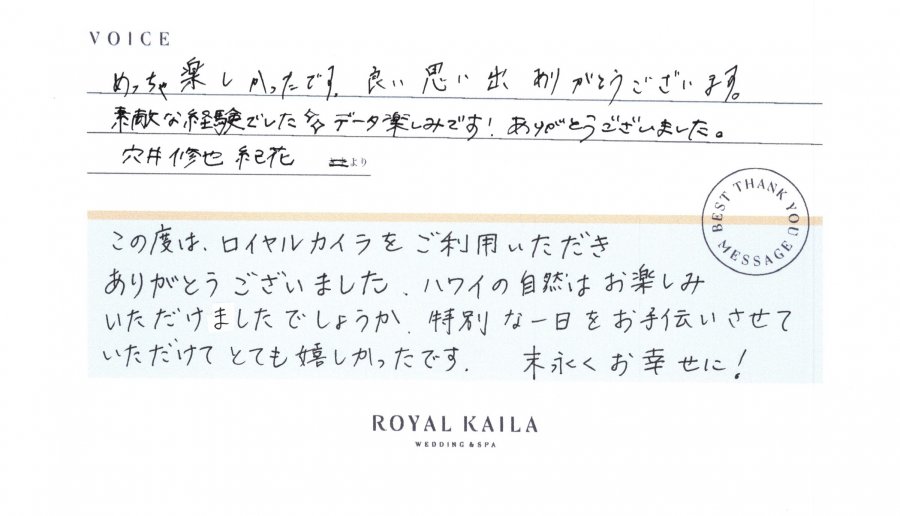 VOICE
めっちゃ楽しかったです。良い思い出ありがとうございます。
素敵な経験でした データ楽しみです！ありがとうございました。
穴井修也 紀花 より
BEST THANK YOU MESSAGE
この度は、ロイヤルカイラをご利用いただき
ありがとうございました、ハワイの自然はお楽しみ
いただけましたでしょうか、特別な一日をお手伝いさせて
いただけてとても嬉しかったです. 末永くお幸せに！
ROYAL KAILA
WEDDING & SPA